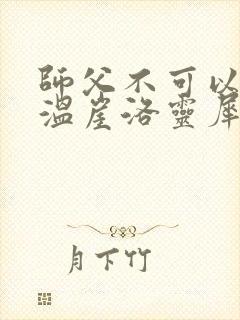 師父不可以
溫崖洛靈犀
月下竹